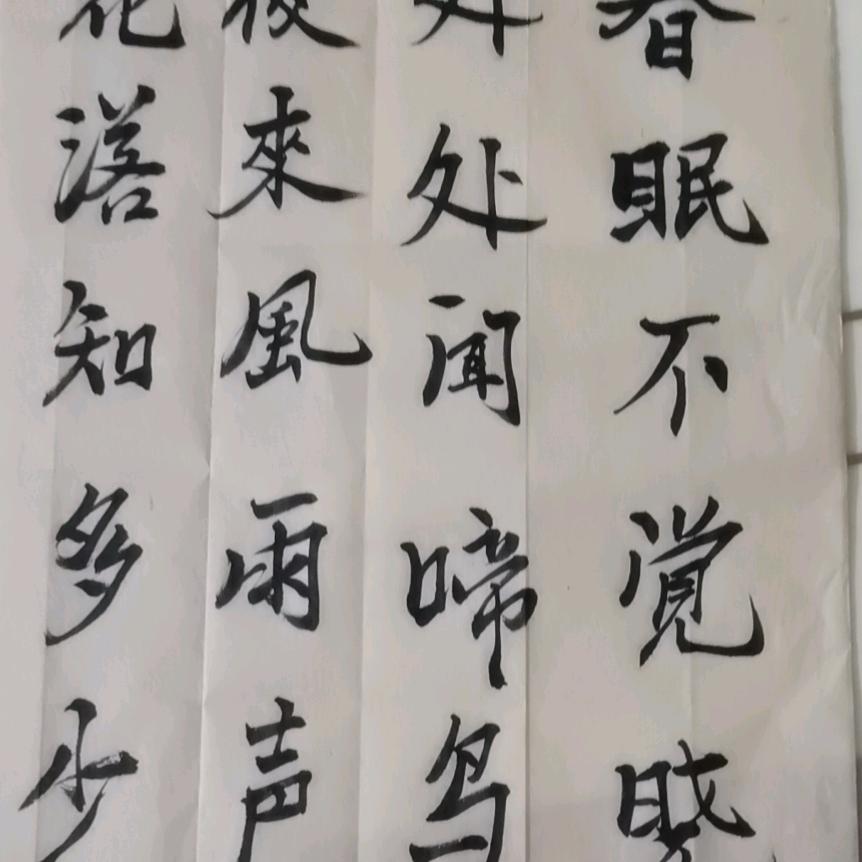 春眠不覚晓
处处闻啼鸟
夜來風雨声
花落知多少